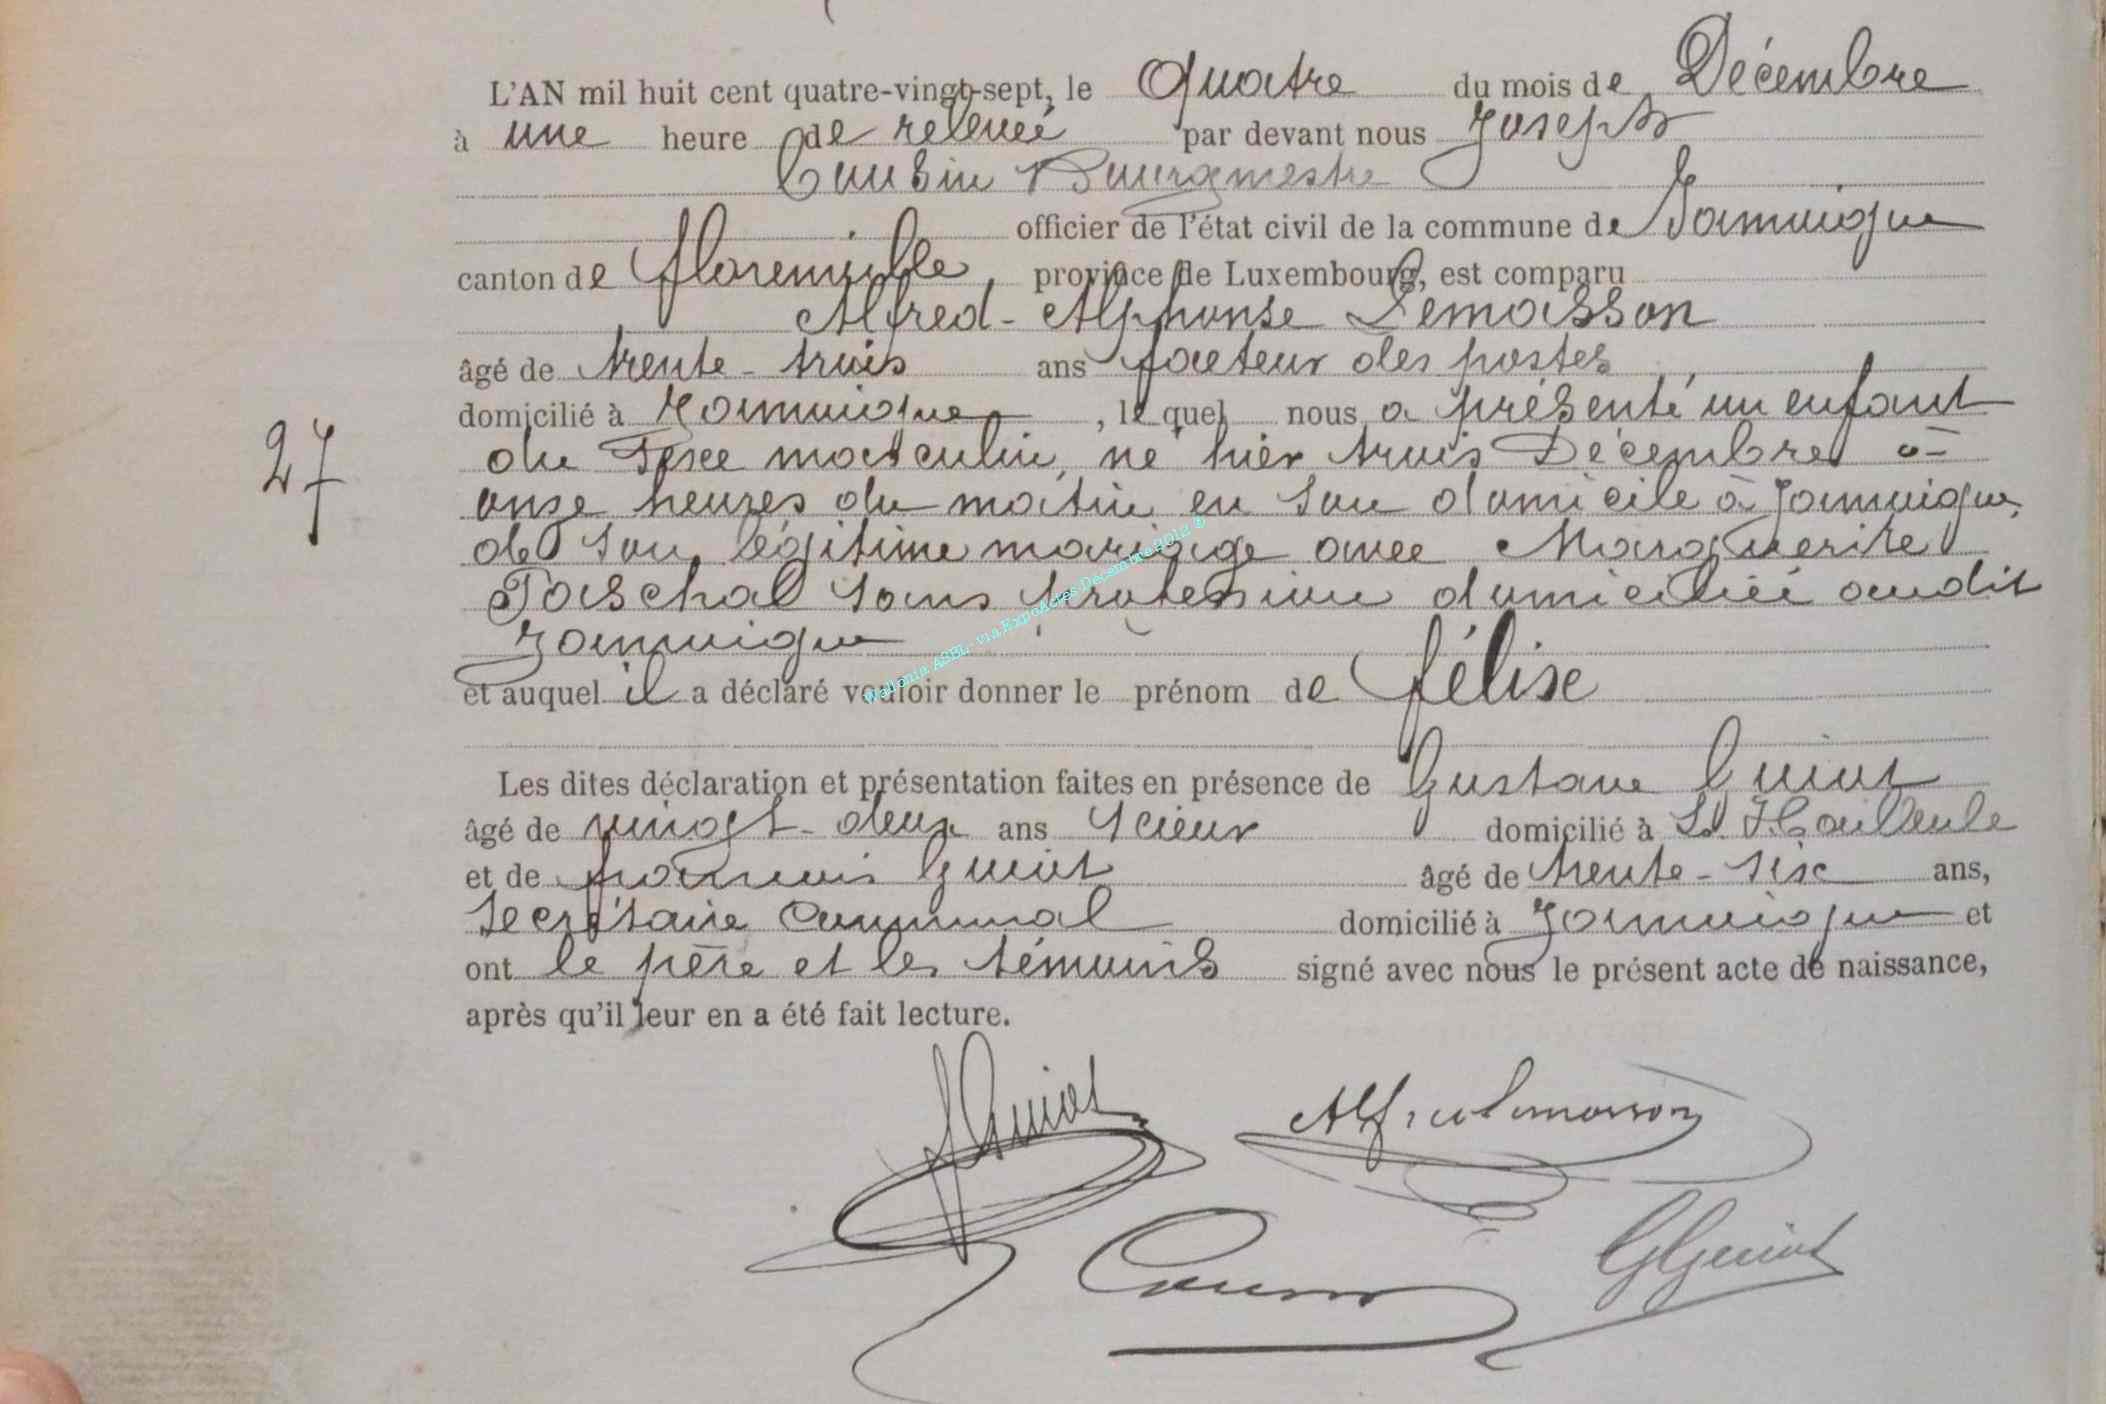 L'AN mil huit cent quatre-vingt-sept, le Quatre du mois de Décembre
à une heure de relevée par devant nous Joseph
Cousin Bourgmestre
officier de l'état civil de la commune de Jamoigne
canton de florenville, province de Luxembourg, est comparu
Alfred-Alphonse Lemasson
âgé de trente-trois ans facteur des postes
domicilié à Jamoigne, lequel nous a présenté un enfant
27
du Sexe masculin, né hier trois Décembre à
onze heures du matin en son domicile à Jamoigne,
de son légitime mariage avec Marguerite
Paschal sans profession domiciliée audit
Jamoigne
et auquel il a déclaré vouloir donner le prénom de félise
Wallonia ASBL - via ExpoActes Decembre 2012 ©
Les dites déclaration et présentation faites en présence de Gustave Guiot
âgé de vingt-deux ans scieur domicilié à
et de françois Guiot âgé de trente-six ans,
Secrétaire Communal domicilié à Jamoigne et
ont le père et les témoins signé avec nous le présent acte de naissance,
après qu'il leur en a été fait lecture.
fGuiot Alfred Lemasson
GGuiot